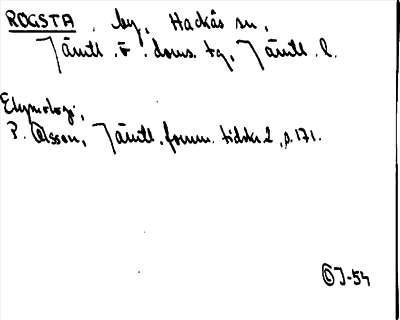 ROGSTA, by, Hackås sn,
Jämtl. ö. doms. tg, Jämtl. l.
Etymologi;
P. Olsson, Jämtl. fornm. tidskr. 2, s. 171.
ÖJ-54